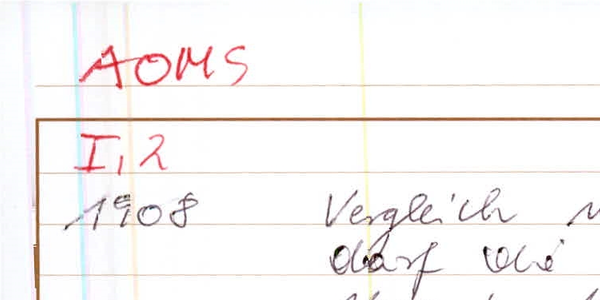 AOMS
I, 2
1908 Vergleich
darf die